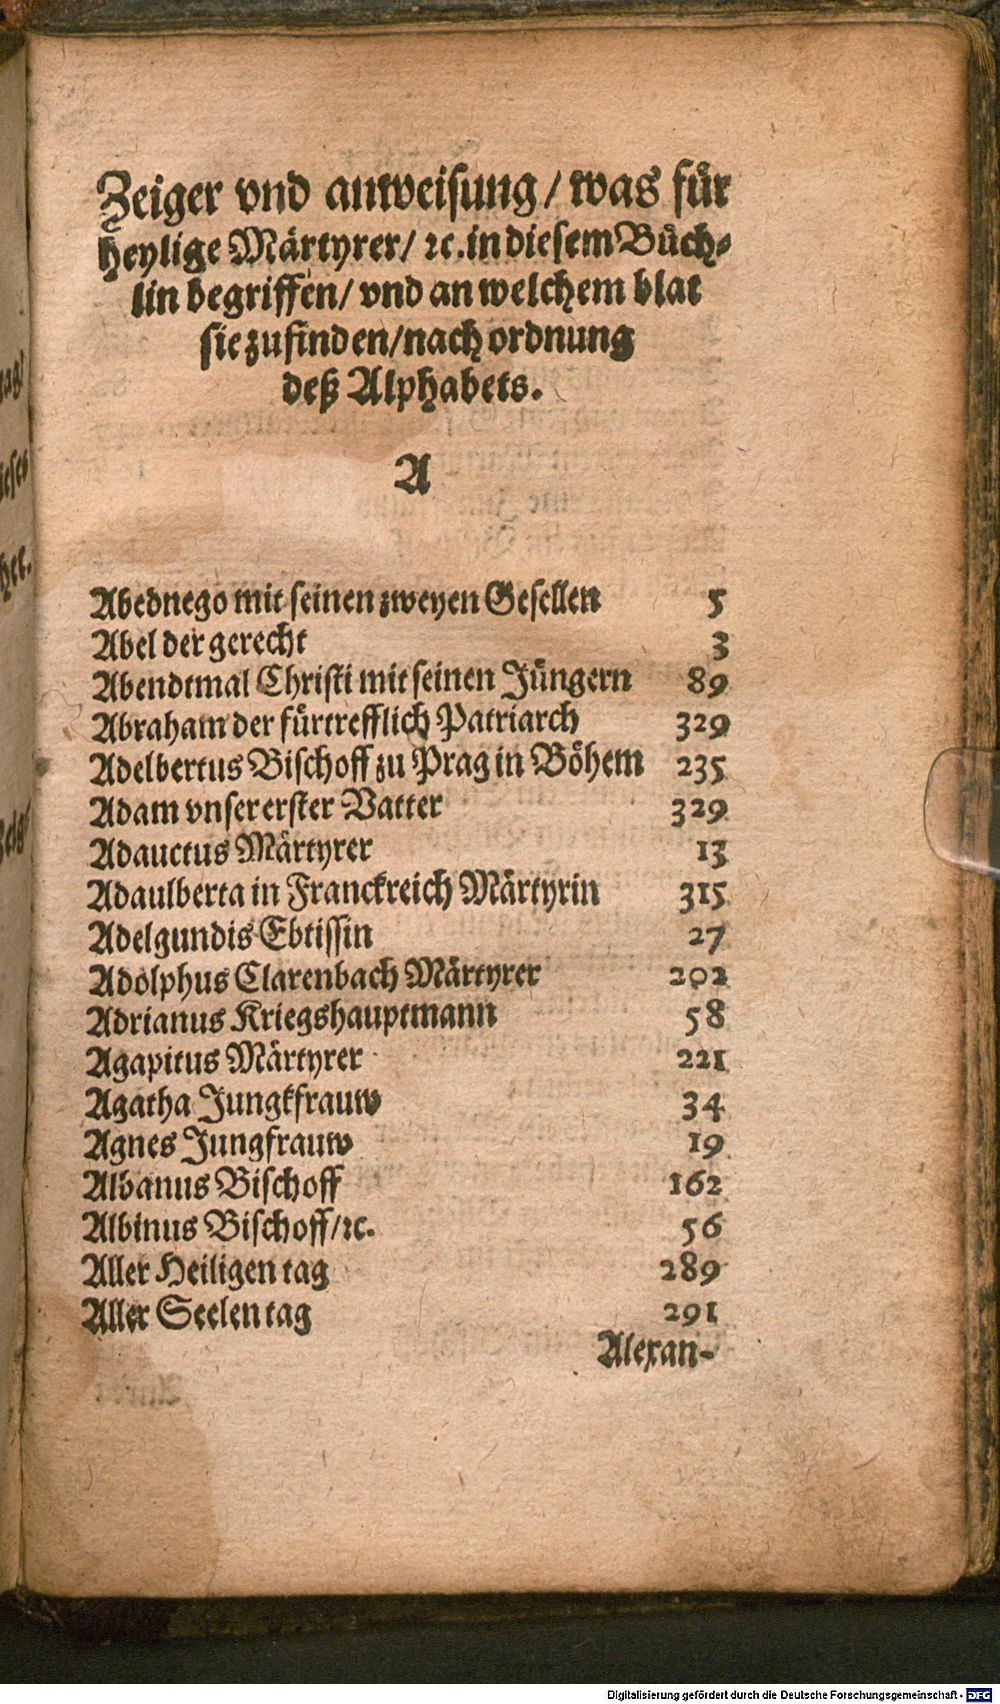 Zeiger vnd anweisung / was für
heylige Märtyrer / ꝛc. in diesem Büch⸗
lin begriffen / vnd an welchem blat
sie zufinden / nach ordnung
deß Alphabets.
A
Abednego mit seinen zweyen Gesellen 5
Abel der gerecht 3
Abendtmal Christi mit seinen Jüngern 89
Abraham der fürtrefflich Patriarch 329
Adelbertus Bischoff zu Prag in Böhem 235
Adam vnser erster Vatter 329
Adauctus Märtyrer 13
Adaulberta in Franckreich Märtyrin 315
Adelgundis Ebtissin 27
Adolphus Clarenbach Märtyrer 202
Adrianus Kriegshauptmann 58
Agapitus Märtyrer 221
Agatha Jungkfrauw 34
Agnes Jungfrauw 19
Albanus Bischoff 162
Albinus Bischoff / ꝛc. 56
Aller Heiligen tag 289
Aller Seelen tag 291
Alexan-
Digitalisierung gefördert durch die Deutsche Forschungsgemeinschaft - DFG